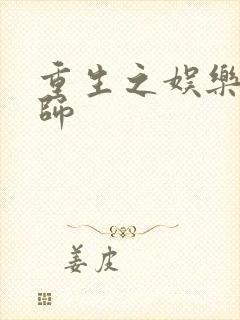 重生之娱樂
師
姜皮